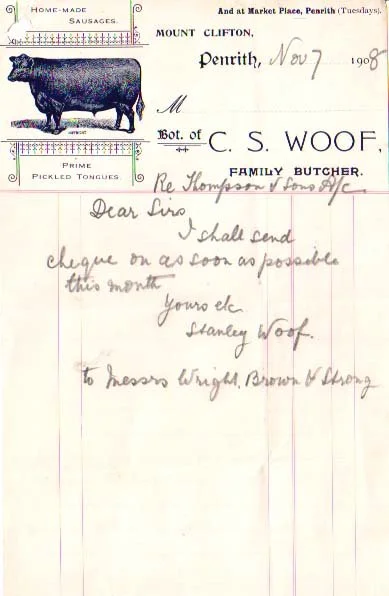 HOME-MADE
SAUSAGES.
And at Market Place, Penrith (Tuesdays).
MOUNT CLIFTON,
Penrith, Nov 7 1908
M
Bot. of C. S. WOOF,
FAMILY BUTCHER.
PRIME
PICKLED TONGUES.
Re Thompson & Sons A/c
Dear Sirs
I shall send
cheque on as soon as possible
this month
Yours etc
Stanley Woof.
to Messrs Wright, Brown & Strong